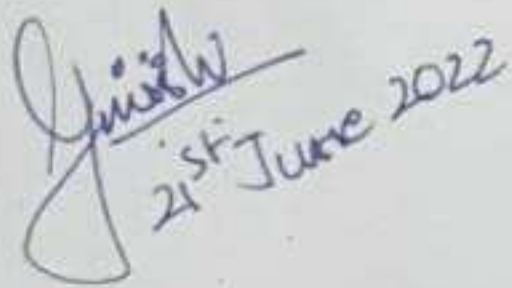 21st June 2022